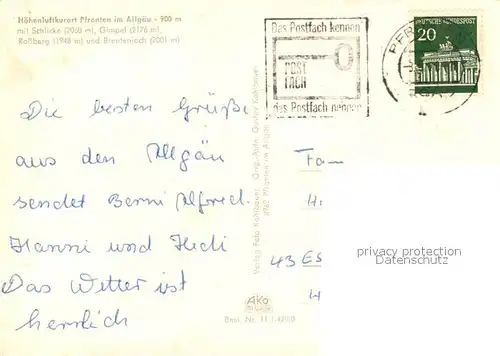 Höhenluftkurort Pfronten im Allgäu - 900 m
mit Schlicke (2060 m), Gimpel (2176 m),
Roßberg (1948 m) und Brentenjoch (2001 m)
Das Postfach kennen
POST
FACH
das Postfach nennen
DEUTSCHE BUNDESPOST
20
PFR
Die besten Grüße
aus den Allgäu
sendet Berni Alfred
Hanni und Hedi
Das Wetter ist
herrlich
Verlag Foto Kohlbauer
8962 Pfronten im Allgäu
Fam
H
43 ES
privacy protection
Datenschutz
AKO
Best. Nr.